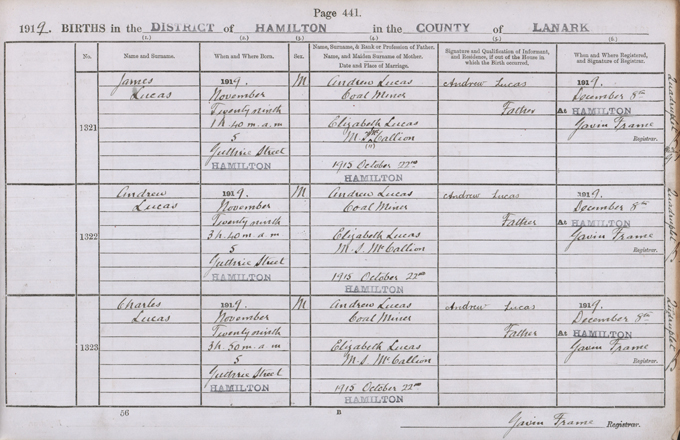 Page 441.
1919. BIRTHS in the DISTRICT of HAMILTON in the COUNTY of LANARK
(1.) (2.) (3.) (4.) (5.) (6.)
No. Name and Surname. When and Where Born. Sex. Name, Surname, & Rank or Profession of Father. Name, and Maiden Surname of Mother. Date and Place of Marriage. Signature and Qualification of Informant, and Residence, if out of the House in which the Birth occurred. When and Where Registered, and Signature of Registrar.
1321
James
Lucas
1919.
November
Twenty ninth
1 h 40 m. a m
5
Guthrie Street
HAMILTON
M
Andrew Lucas
Coal Miner
Elizabeth Lucas
M. S. Mc Callion
1915 October 22nd
HAMILTON
Andrew Lucas
Father
1919.
December 8th
At HAMILTON
Gavin Frame
Registrar.
1322
Andrew
Lucas
1919.
November
Twenty ninth
3 h. 40 m. a m
5
Guthrie Street
HAMILTON
M
Andrew Lucas
Coal Miner
Elizabeth Lucas
M. S. McCallion
1915 October 22nd
HAMILTON
Andrew Lucas
Father
1919.
December 8th
At HAMILTON
Gavin Frame
Registrar.
1323
Charles
Lucas
1919.
November
Twenty ninth
3 h. 50 m. a m
5
Guthrie Street
HAMILTON
M
Andrew Lucas
Coal Miner
Elizabeth Lucas
M. S. McCallion
1915 October 22nd
HAMILTON
Andrew Lucas
Father
1919.
December 8th
At HAMILTON
Gavin Frame
Registrar.
56
B
Gavin Frame Registrar.